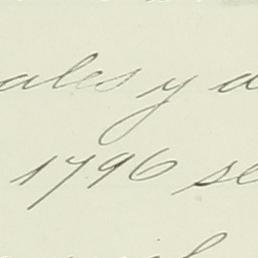 ales y a
1796 se